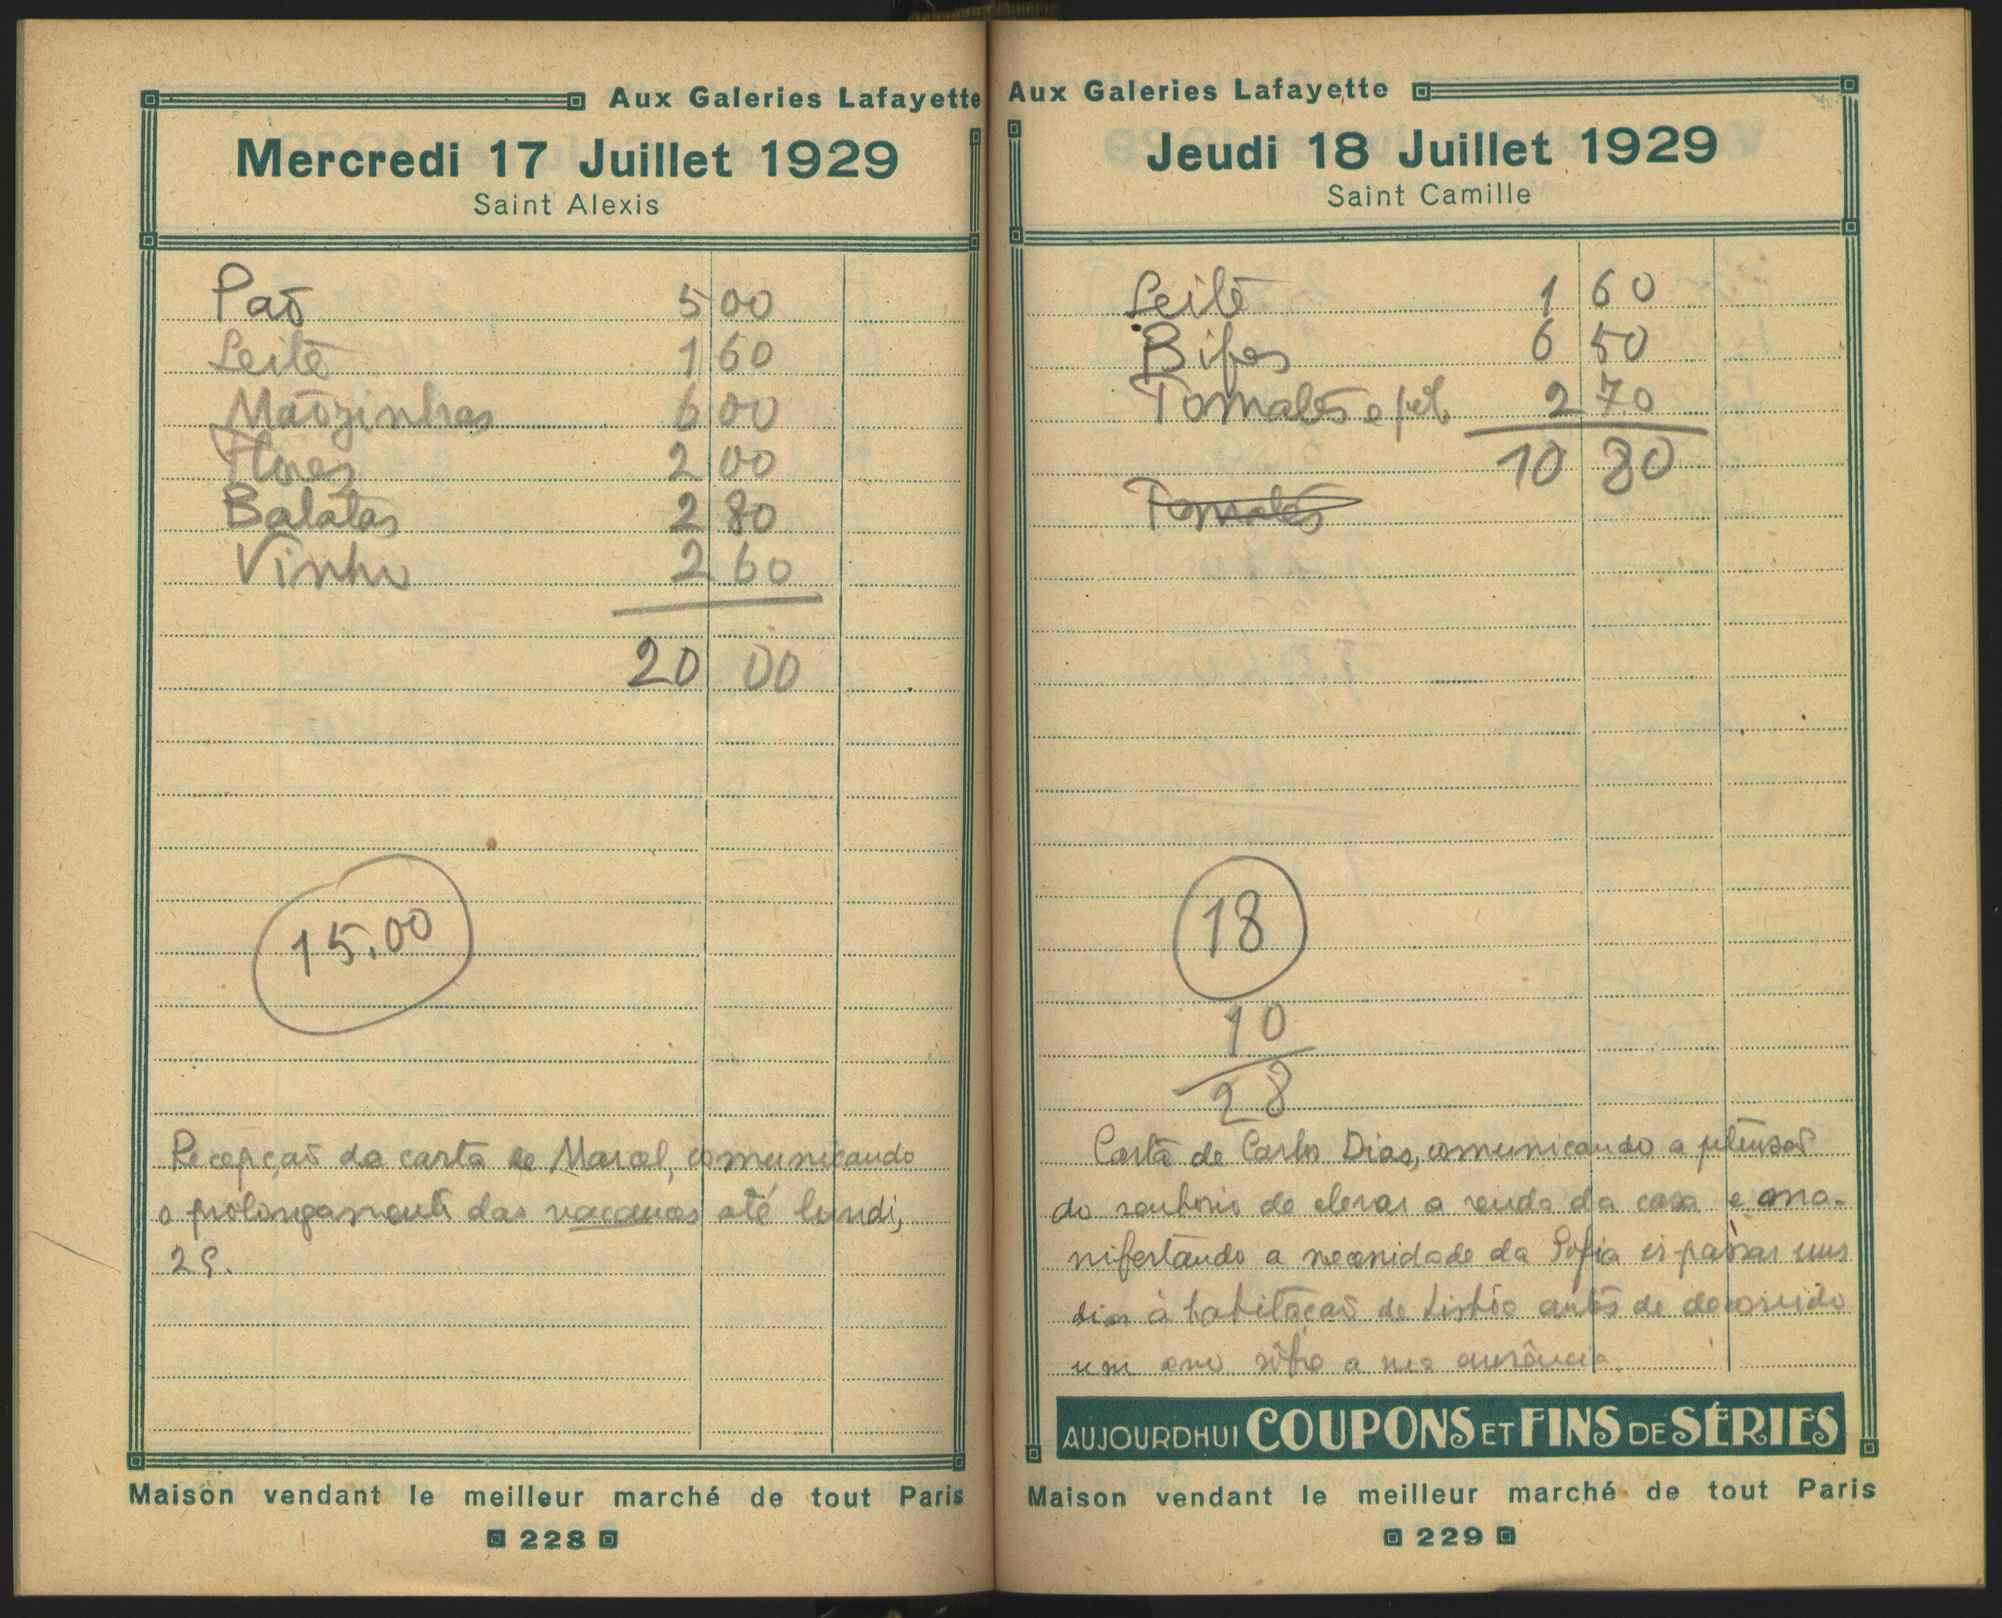 Aux Galeries Lafayette
Mercredi 17 Juillet 1929
Saint Alexis
Paõ 5 00
Leite 1 60
Maõzinhas 6 00
Flores 2 00
Batatas 2 80
Vinho 2 60
20 00
15.00
Recepçaõ da carta de Marcel, comunicando
o prolongamento das vacances até lundi,
29.
Maison vendant le meilleur marché de tout Paris
228
Aux Galeries Lafayette
Jeudi 18 Juillet 1929
Saint Camille
Leite 1 60
Bifes 6 50
Tomates e 2 70
10 80
Tomates
18
10
28
Carta de Carlos Dias, comunicando a pretensaõ
do senhorio de elevar a renda da casa e ma-
nifestando a necessidade da Sofia ir passar uns
dias à habitaçaõ de Lisbôa antes de decorrido
um ano sôbre a nossa ausência.
AUJOURDHUI COUPONS ET FINS DE SÉRIES
Maison vendant le meilleur marché de tout Paris
229